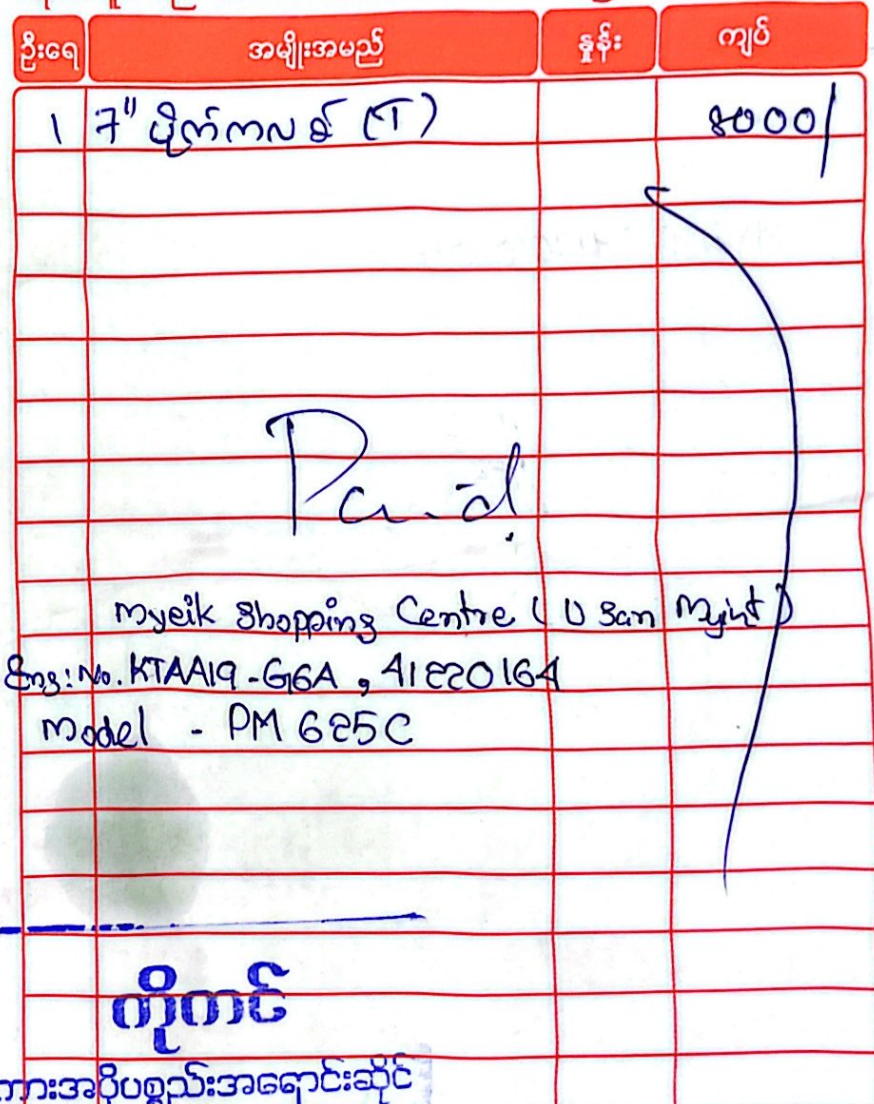 ဦးရေ အမျိုးအမည် နှုန်း ကျပ်
1 7" ပိုက်ကလစ် (T) 8000/
Paid.
Myeik Shopping Centre (U San Myint)
Eng: No. KTAA19-G6A, 41220164
Model - PM 625C
ကိုကင်
ကားအပိုပစ္စည်းအရောင်းဆိုင်